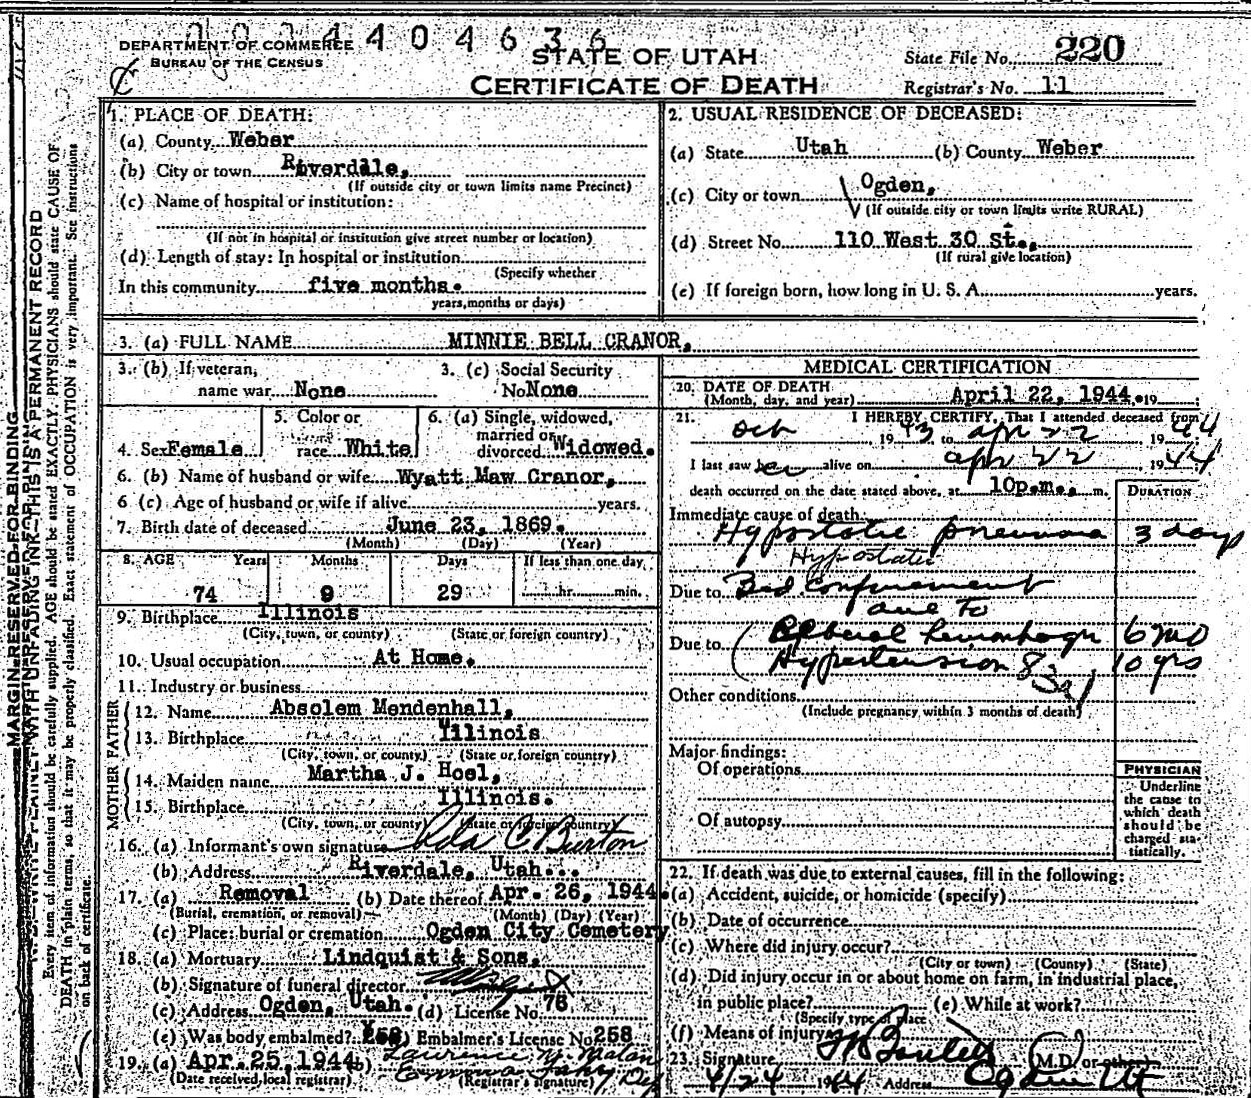 4 4 0 4 6 3 6
DEPARTMENT OF COMMERCE
BUREAU OF THE CENSUS
STATE OF UTAH
CERTIFICATE OF DEATH
State File No. 220
Registrar's No. 11
MARGIN RESERVED FOR BINDING
THIS IS A PERMANENT RECORD
Every item of information should be carefully supplied. AGE should be stated EXACTLY. PHYSICIANS should state CAUSE OF
DEATH in plain terms, so that it may be properly classified. Exact statement of OCCUPATION is very important. See instructions
on back of certificate.
1. PLACE OF DEATH:
(a) County Weber
(b) City or town Riverdale,
(If outside city or town limits name Precinct)
(c) Name of hospital or institution:
(If not in hospital or institution give street number or location)
(d) Length of stay: In hospital or institution
(Specify whether
In this community five months.
years, months or days)
2. USUAL RESIDENCE OF DECEASED:
(a) State Utah (b) County Weber
(c) City or town Ogden,
(If outside city or town limits write RURAL)
(d) Street No. 110 West 30 St.,
(If rural give location)
(e) If foreign born, how long in U. S. A. years.
3. (a) FULL NAME MINNIE BELL CRANOR,
3. (b) If veteran, name war None
3. (c) Social Security No. None
4. Sex Female
5. Color or race White
6. (a) Single, widowed, married or divorced Widowed.
6. (b) Name of husband or wife Wyatt Maw Cranor,
6 (c) Age of husband or wife if alive years.
7. Birth date of deceased June 23, 1869.
(Month) (Day) (Year)
8. AGE Years Months Days If less than one day
74 9 29 hr. min.
9. Birthplace Illinois
(City, town, or county) (State or foreign country)
10. Usual occupation At Home.
11. Industry or business
FATHER
12. Name Absolem Mendenhall,
13. Birthplace Illinois
(City, town, or county) (State or foreign country)
MOTHER
14. Maiden name Martha J. Hoel,
15. Birthplace Illinois.
(City, town, or county) (State or foreign country)
16. (a) Informant's own signature Ada C Burton
(b) Address Riverdale, Utah.
17. (a) Removal (b) Date thereof Apr. 26, 1944.
(Burial, cremation, or removal) (Month) (Day) (Year)
(c) Place: burial or cremation Ogden City Cemetery
18. (a) Mortuary Lindquist & Sons,
(b) Signature of funeral director
(c) Address Ogden, Utah. (d) License No. 76
(e) Was body embalmed? Yes (f) Embalmer's License No. 258
19. (a) Apr. 25, 1944 (b) Lawrence
(Date received local registrar) (Registrar's signature)
MEDICAL CERTIFICATION
20. DATE OF DEATH April 22, 1944. 19
(Month, day, and year)
21. I HEREBY CERTIFY, That I attended deceased from
Oct 1943 to Apr 22 1944
I last saw her alive on Apr 22 1944
death occurred on the date stated above, at 10p.m. m. DURATION
Immediate cause of death:
Hypostatic pneumonia 3 days
Hypostatic
Due to Bed Confinement
due to
Due to Cerebral hemorrhage 6 mo
Hypertension 83a 10 yrs
Other conditions
(Include pregnancy within 3 months of death)
Major findings:
Of operations
Of autopsy
PHYSICIAN
Underline the cause to which death should be charged statistically.
22. If death was due to external causes, fill in the following:
(a) Accident, suicide, or homicide (specify)
(b) Date of occurrence
(c) Where did injury occur?
(City or town) (County) (State)
(d) Did injury occur in or about home on farm, in industrial place,
in public place? (e) While at work?
(Specify type of place
(f) Means of injury
23. Signature (M.D. or other)
4/24 1944 Address Ogden Ut